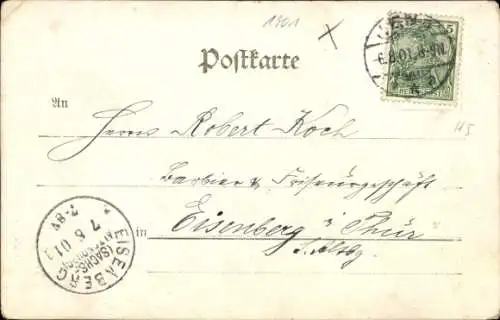 1901
JENA
6.8.01. 8-9N
5
Postkarte
An
Herrn Robert Koch
Barbier & Friseurgeschäft
in Eisenberg i Thür
S. Altbg
EISENBERG
7 8 01
7-8V